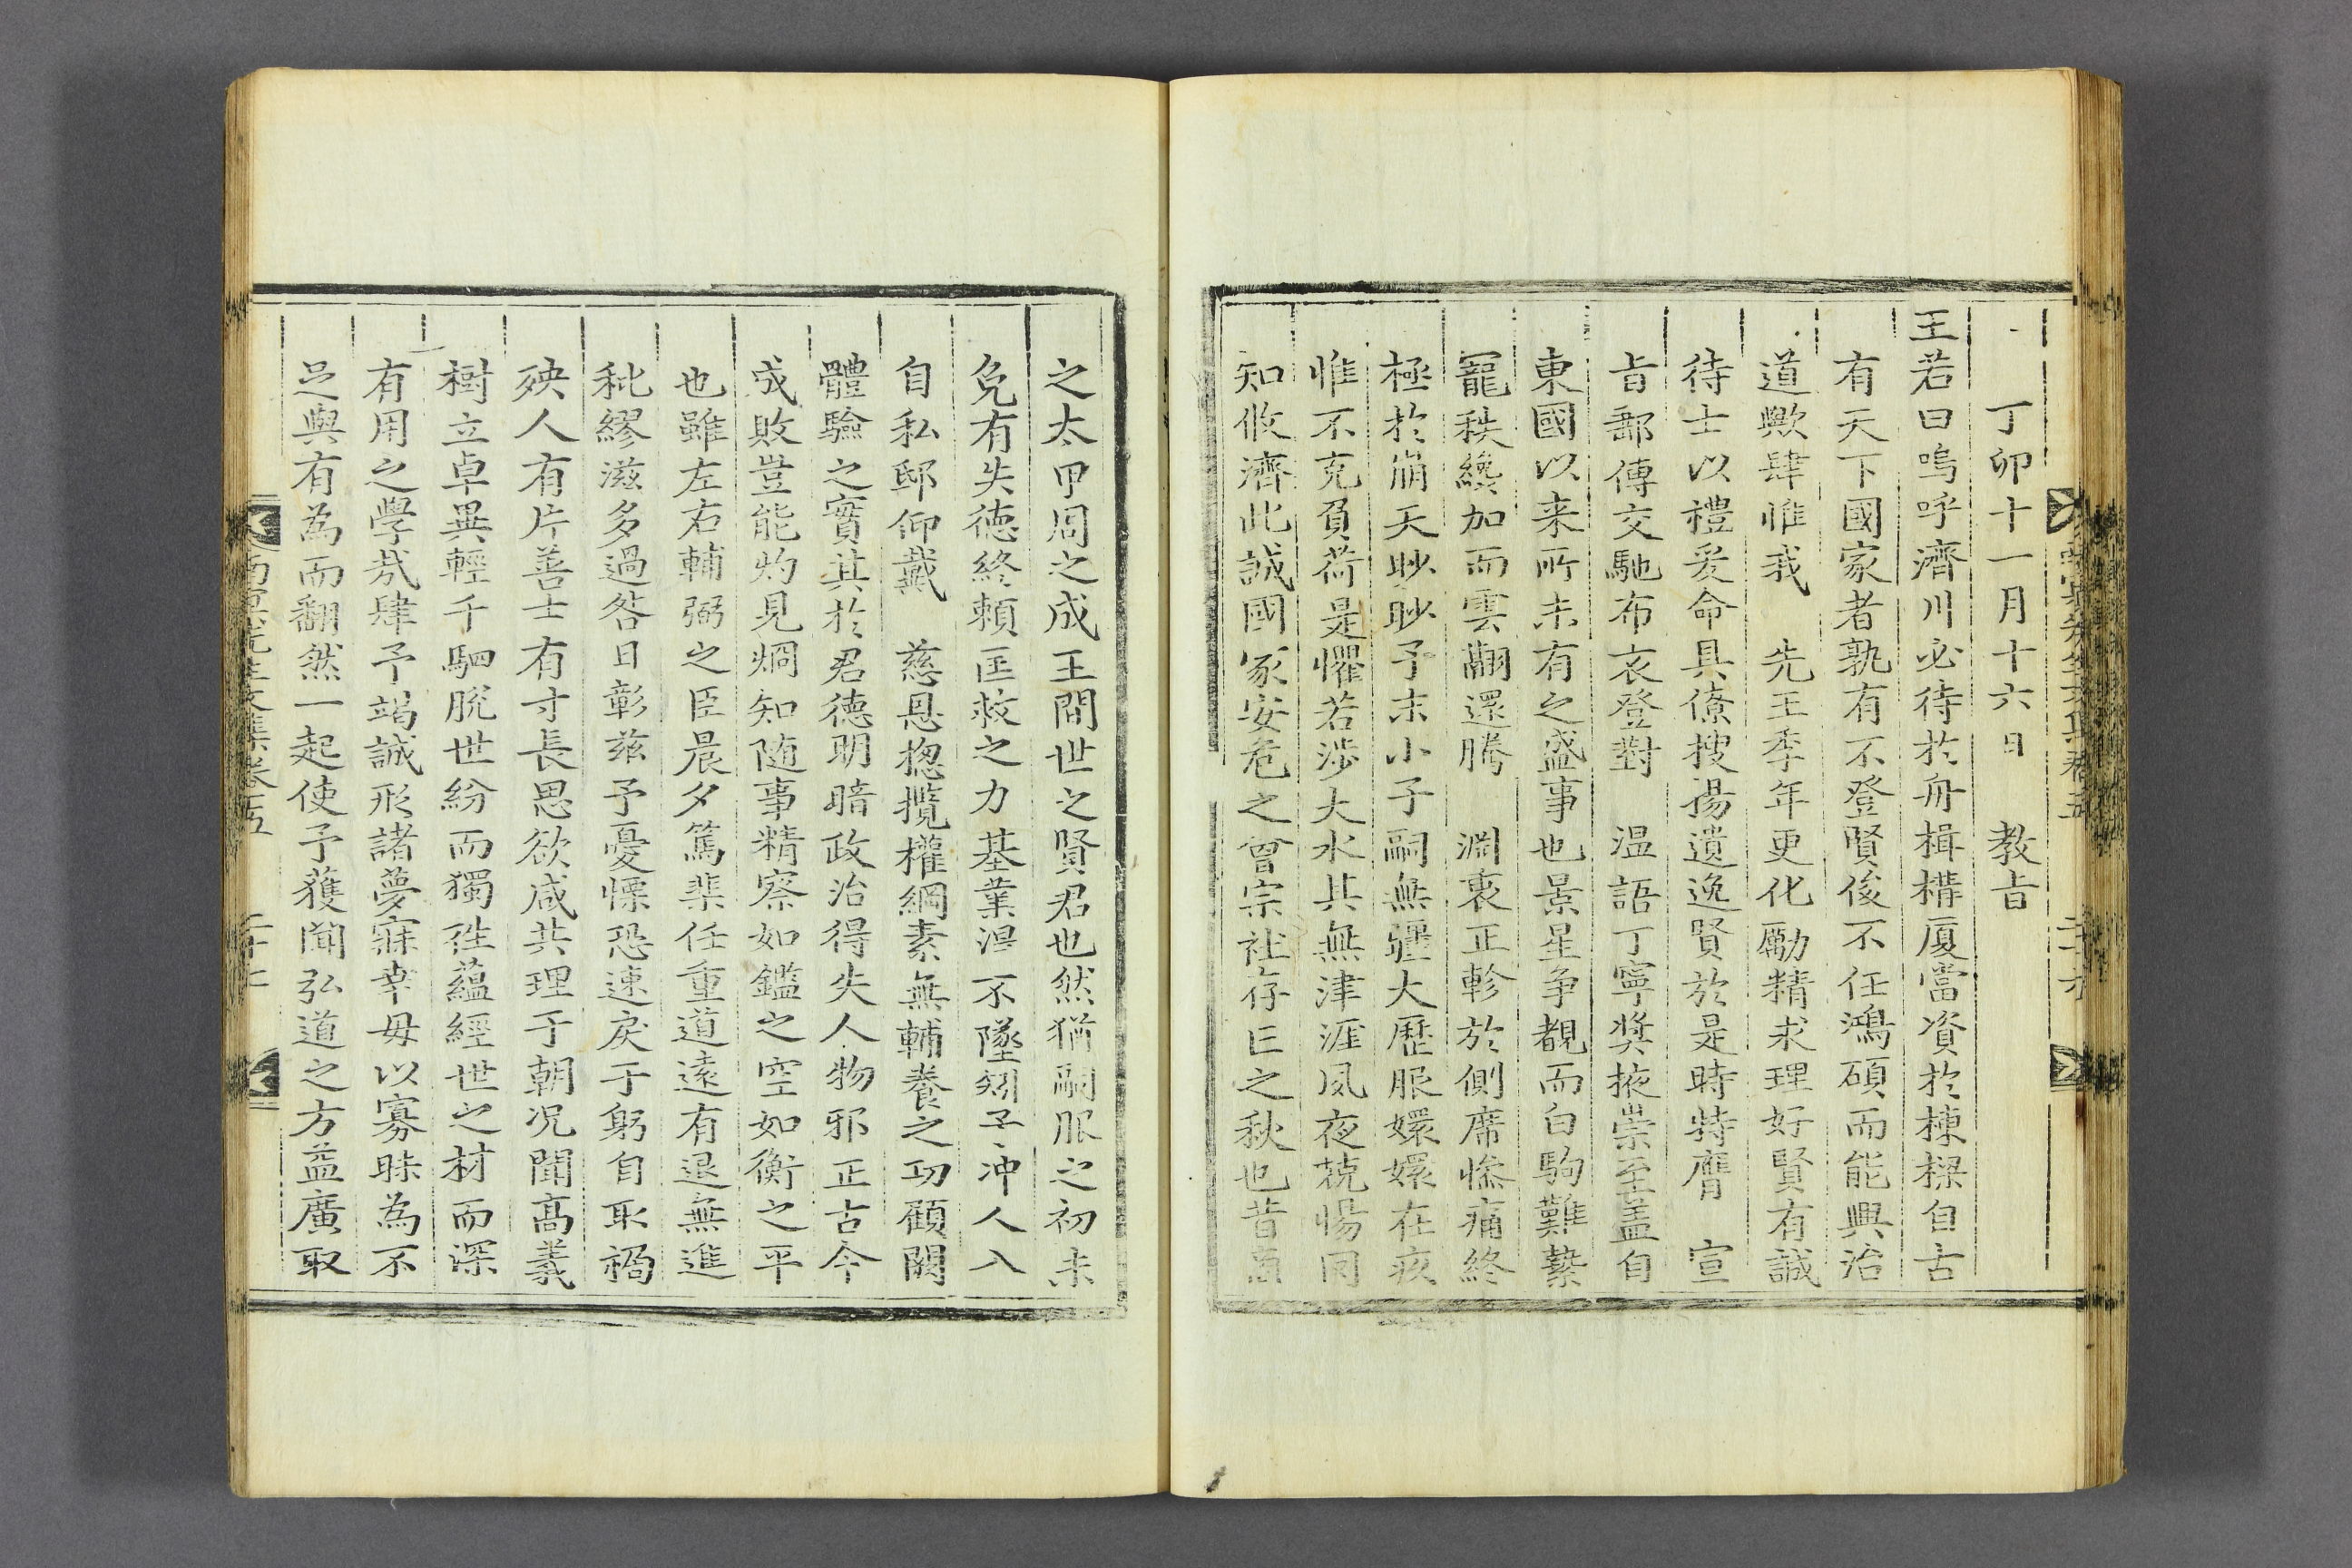 丁卯十一月十六日　教旨
王若曰嗚呼濟川必待於舟楫構厦當資於棟樑自古
有天下國家者孰有不登賢俊不任鴻碩而能興治
道歟肆惟我　先王季年更化勵精求理好賢有誠
待士以禮爰命具僚搜揚遺逸賢於是時特膺　宣
旨郵傳交馳布衣登對　温語丁寧奬掖崇至盖自
東國以来所未有之盛事也景星争覩而白駒難縶
寵秩纔加而雲翮還騰　淵衷正軫於側席慘痛終
極於崩天眇眇予末小子嗣無疆大歷服嬛嬛在疚
惟不克負荷是懼若涉大水其無津涯夙夜兢惕罔
知攸濟此誠國家安危之會宗社存亡之秋也昔商
之太甲周之成王間世之賢君也然猶嗣服之初未
免有失德終頼匡救之力基業淂不墜矧予冲人入
自私邸仰戴　慈恩揔攬權綱素無輔養之功顧闕
體驗之實其於君德明暗政治得失人物邪正古今
成敗豈能灼見烱知随事精察如鑑之空如衡之平
也雖左右輔弼之臣晨夕篤棐任重道遠有退無進
秕繆滋多過咎日彰茲予憂慄恐速戾于躬自取禍
殃人有片善士有寸長思欲咸共理于朝况聞髙義
樹立卓異輕千駟脫世紛而獨徃蘊經世之材而深
有用之學㢤肆予竭誠形諸夢寐幸毋以寡昧為不
足與有為而翻然一起使予獲聞弘道之方益廣取
南冥先生文集卷五